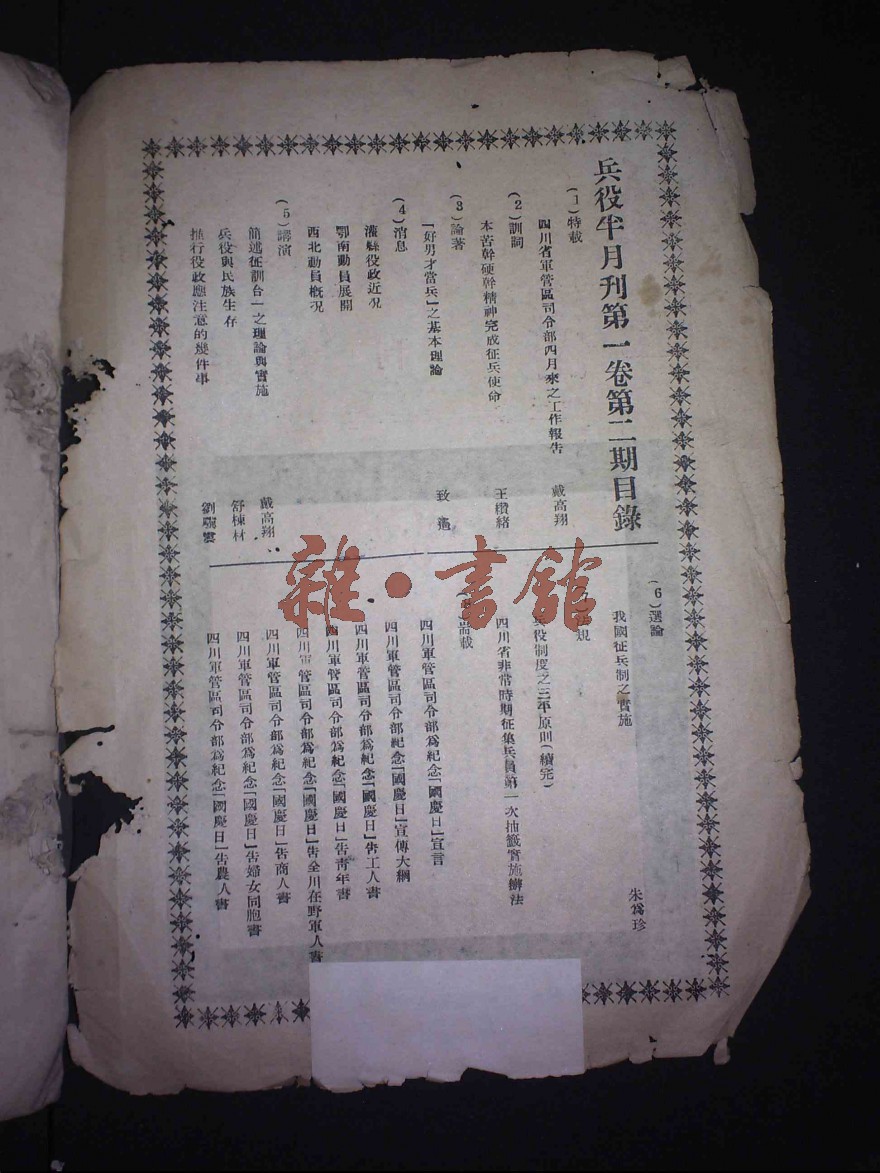 兵役半月刊第一卷第二期目錄
(1)特載
四川省軍管區司令部四月來之工作報告
戴高翔
(2)訓詞
本苦幹硬幹精神完成征兵使命
王纘緒
(3)論著
「好男才當兵」之基本理論
致遠
(4)消息
灌縣役政近况
鄂南動員展開
西北動員概况
(5)講演
簡述征訓合一之理論與實施
戴高翔
兵役與民族生存
舒棟材
推行役政應注意的幾件事
劉瑞雲
(6)選論
我國征兵制之實施
朱為珍
規
兵役制度之三平原則(續完)
四川省非常時期征集兵員第一次抽籤實施辦法
載
四川軍管區司令部為紀念「國慶日」宣言
四川軍管區司令部為紀念「國慶日」宣傳大綱
四川軍管區司令部為紀念「國慶日」告工人書
四川軍管區司令部為紀念「國慶日」告青年書
四川軍管區司令部為紀念「國慶日」告全川在野軍人書
四川軍管區司令部為紀念「國慶日」告商人書
四川軍管區司令部為紀念「國慶日」告婦女同胞書
四川軍管區司令部為紀念「國慶日」告農人書
雜·書館